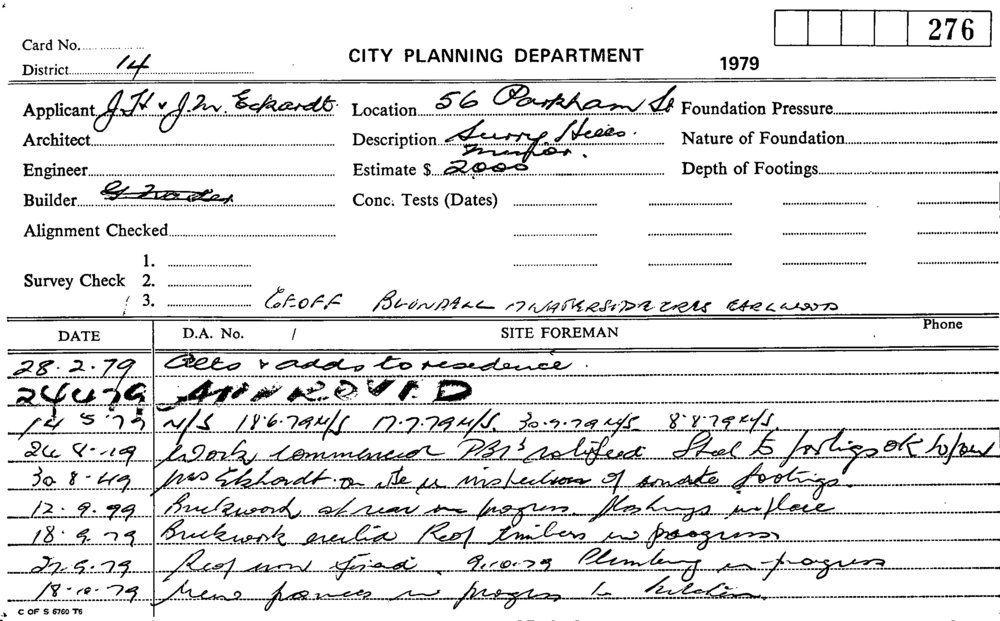 276
Card No.
CITY PLANNING DEPARTMENT
1979
District 14
Applicant J.H & J.M. Eckardt Location 56 Parkham St Foundation Pressure
Architect Description Surry Hills. Nature of Foundation
minor.
Engineer Estimate $ 2000 Depth of Footings
Builder Conc. Tests (Dates)
Alignment Checked
1.
Survey Check 2.
3. GEOFF BLUNDALL EARLWOOD
DATE D.A. No. / SITE FOREMAN Phone
28.2.79 Alts & adds to residence.
24 4 79 APPROVED
14 5 79 N/S 18.6.79 N/S 17.7.79 N/S 30.7.79 N/S 8.8.79 N/S
24 8 79 Work commenced notified Steel to footings OK to pour
30 8 79 Mrs on site inspection of footings.
12.9.79 Brickwork at rear in progress flashings in place
18.9.79 Brickwork erected Roof timbers in progress
9.10.79 Plumbing in progress
18.10.79 in progress to kitchen.
C OF S 6760 T6